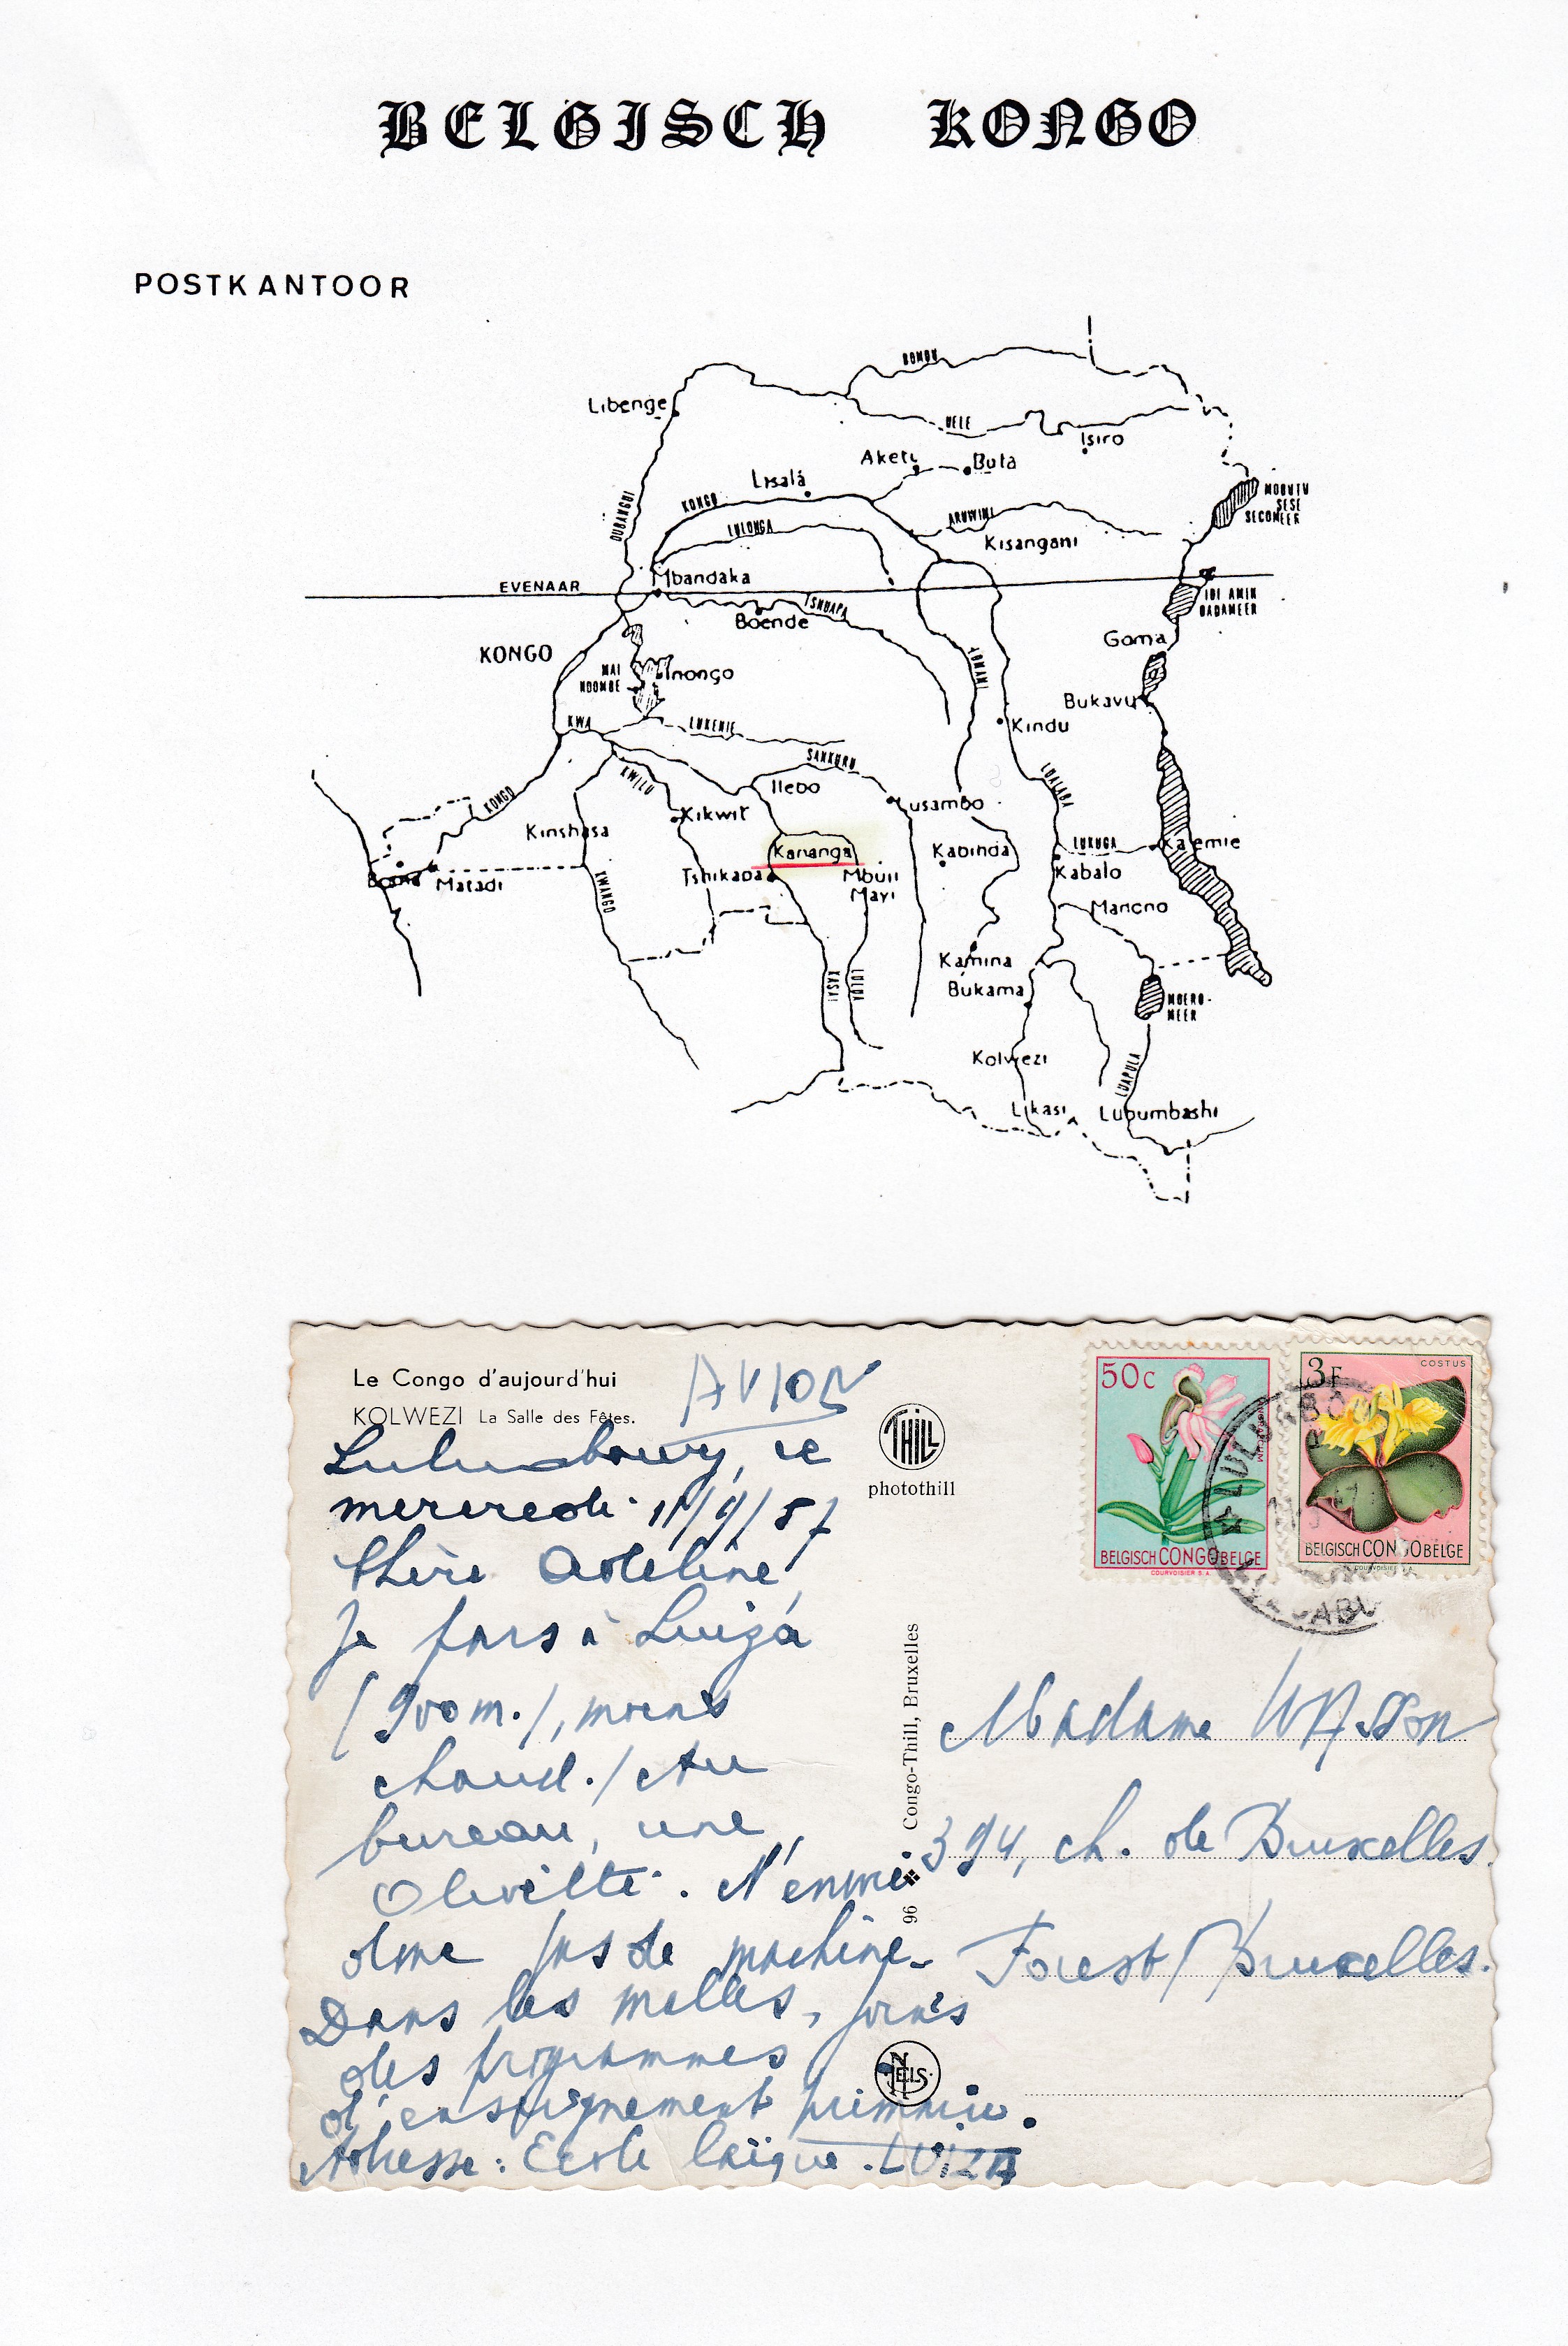 BELGISCH KONGO
POSTKANTOOR
BOMOU
Libenge
UELE
Isiro
Aketi
Buta
Lisala
MOBUTU
SESE
SECOMEER
KONGO
OUBANGUI
LULONGA
ARUWIMI
Kisangani
Mbandaka
EVENAAR
IDI AMIN
DADAMEER
TSHUAPA
Boende
Goma
KONGO
LOMAMI
MAI
NDOMBE
Inongo
Bukavu
KWA
LUKENIE
Kindu
SANKURU
KWILU
Ilebo
LUALABA
KONGO
Lusambo
Kikwit
Kinshasa
Kananga
Kabinda
LUKUGA
Kalemie
Boma
Matadi
Tshikapa
Mbuji
Mayi
Kabalo
KWANGO
Manono
Kamina
KASAI
LULUA
Bukama
MOERO-
MEER
Kolwezi
LUAPULA
Likasi
Lubumbashi
Le Congo d'aujourd'hui
AVION
KOLWEZI La Salle des Fêtes.
THILL
photothill
50c
BELGISCH CONGO BELGE
COURVOISIER S.A.
3F
COSTUS
BELGISCH CONGO BELGE
COURVOISIER S.A.
LULUABOURG
Luluabourg, le
mercredi 11/9/57
Chère Adeline,
Je pars à Luiza
(900 m.), moins
chaud. / Au
bureau, une
Olivetti. N'emmè
dme pas de machine.
Dans les malles, j'ai
des programmes
d'enseignement primaire.
Adresse: Ecole laïque. LUIZA
96 Congo-Thill, Bruxelles
NELS
Madame Wasson
394, ch. de Bruxelles.
Forest / Bruxelles.